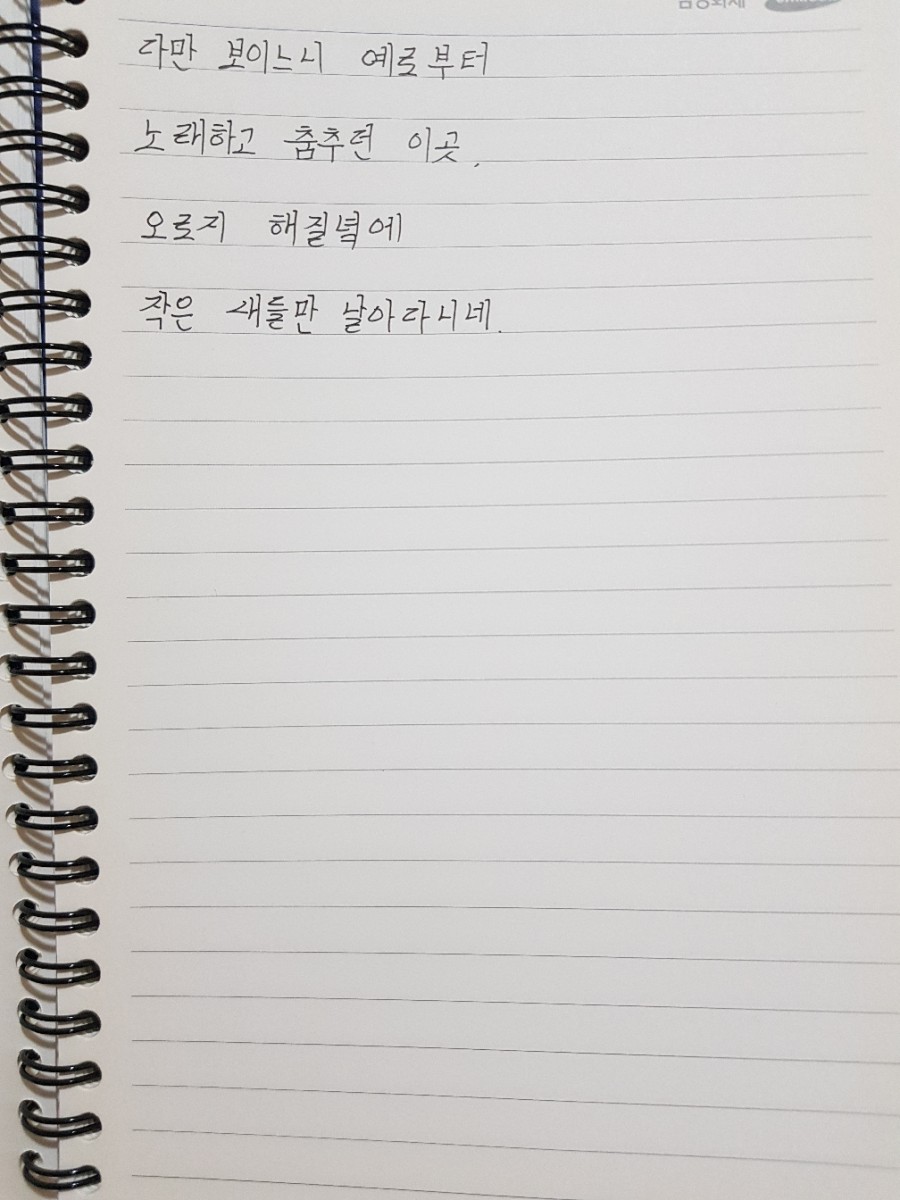 삼성화재
다만 보이느니 예로부터
노래하고 춤추던 이곳,
오로지 해질녘에
작은 새들만 날아다니네.